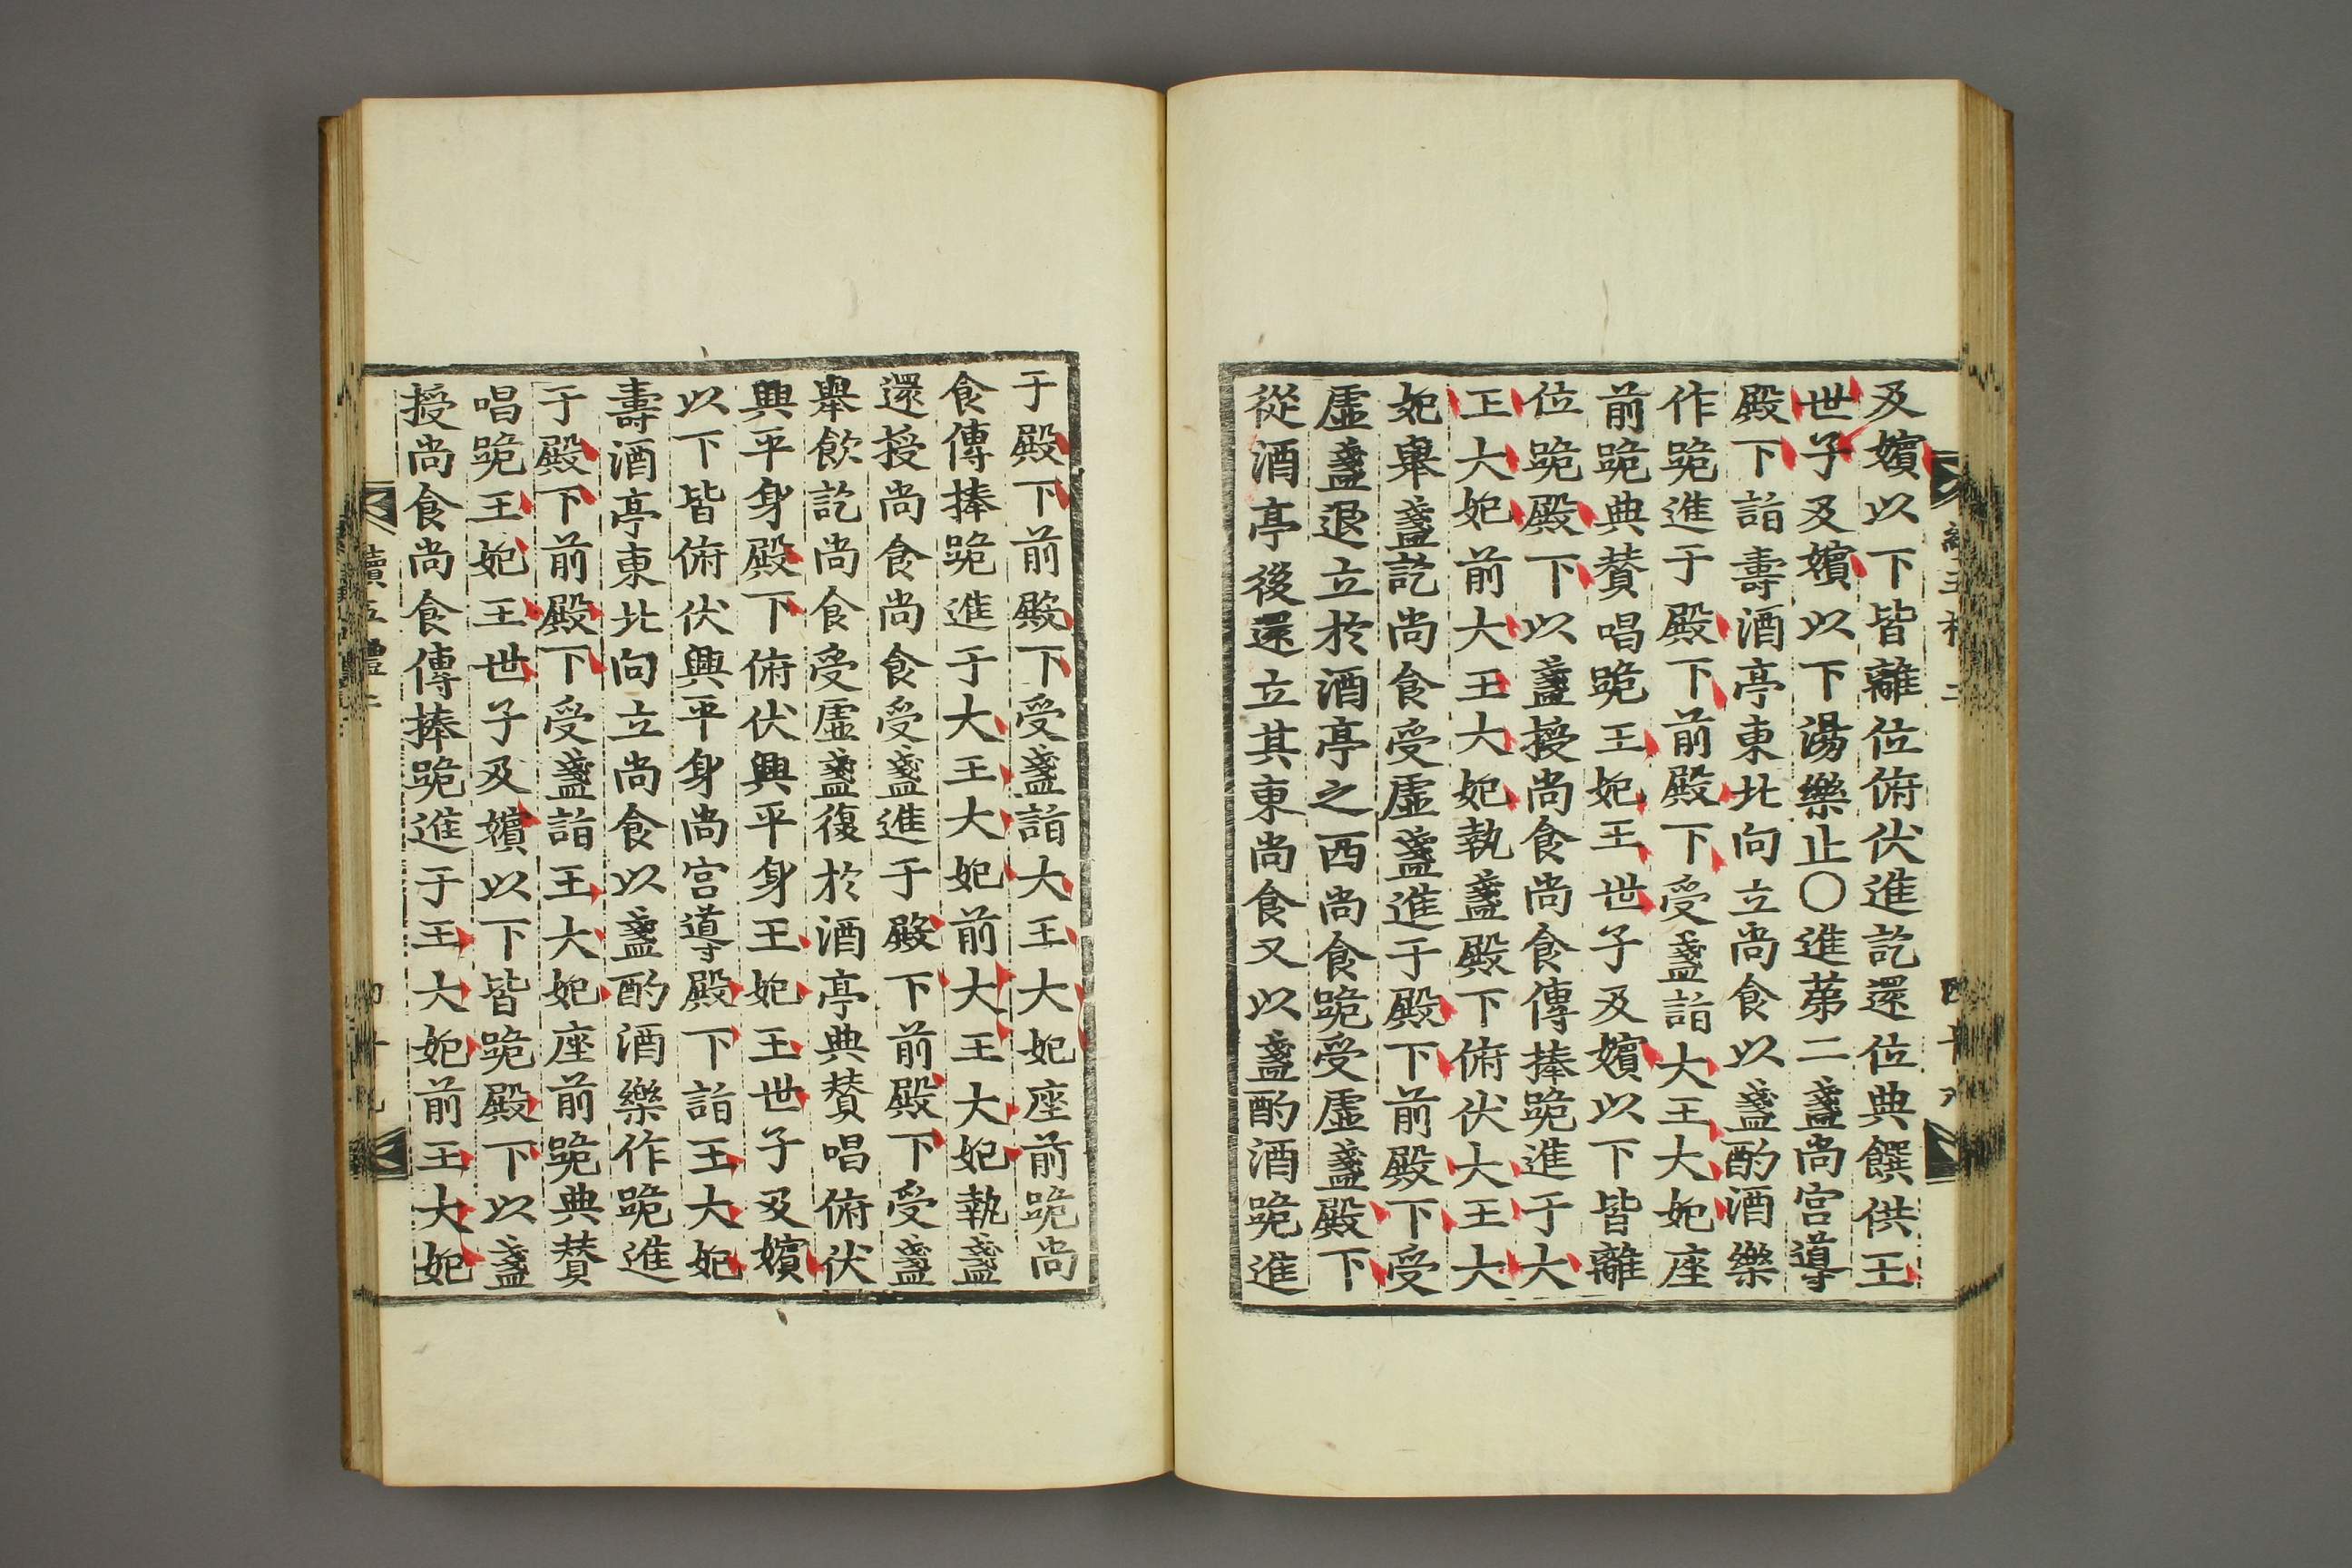 及嬪以下皆離位俯伏進訖還位典饌供王
世子及嬪以下湯樂止○進第二盞尚宮導
殿下詣壽酒亭東北向立尚食以盞酌酒樂
作跪進于殿下前殿下受盞詣大王大妃座
前跪典贊唱跪王妃王世子及嬪以下皆離
位跪殿下以盞授尚食尚食傳捧跪進于大
王大妃前大王大妃執盞殿下俯伏大王大
妃舉盞訖尚食受虛盞進于殿下前殿下受
虛盞退立於酒亭之西尚食跪受虛盞殿下
從酒亭後還立其東尚食又以盞酌酒跪進
于殿下前殿下受盞詣大王大妃座前跪尚
食傳捧跪進于大王大妃前大王大妃執盞
還授尚食尚食受盞進于殿下前殿下受盞
舉飮訖尚食受虛盞復於酒亭典贊唱俯伏
興平身殿下俯伏興平身王妃王世子及嬪
以下皆俯伏興平身尚宮導殿下詣王大妃
壽酒亭東北向立尚食以盞酌酒樂作跪進
于殿下前殿下受盞詣王大妃座前跪典贊
唱跪王妃王世子及嬪以下皆跪殿下以盞
授尚食尚食傳捧跪進于王大妃前王大妃